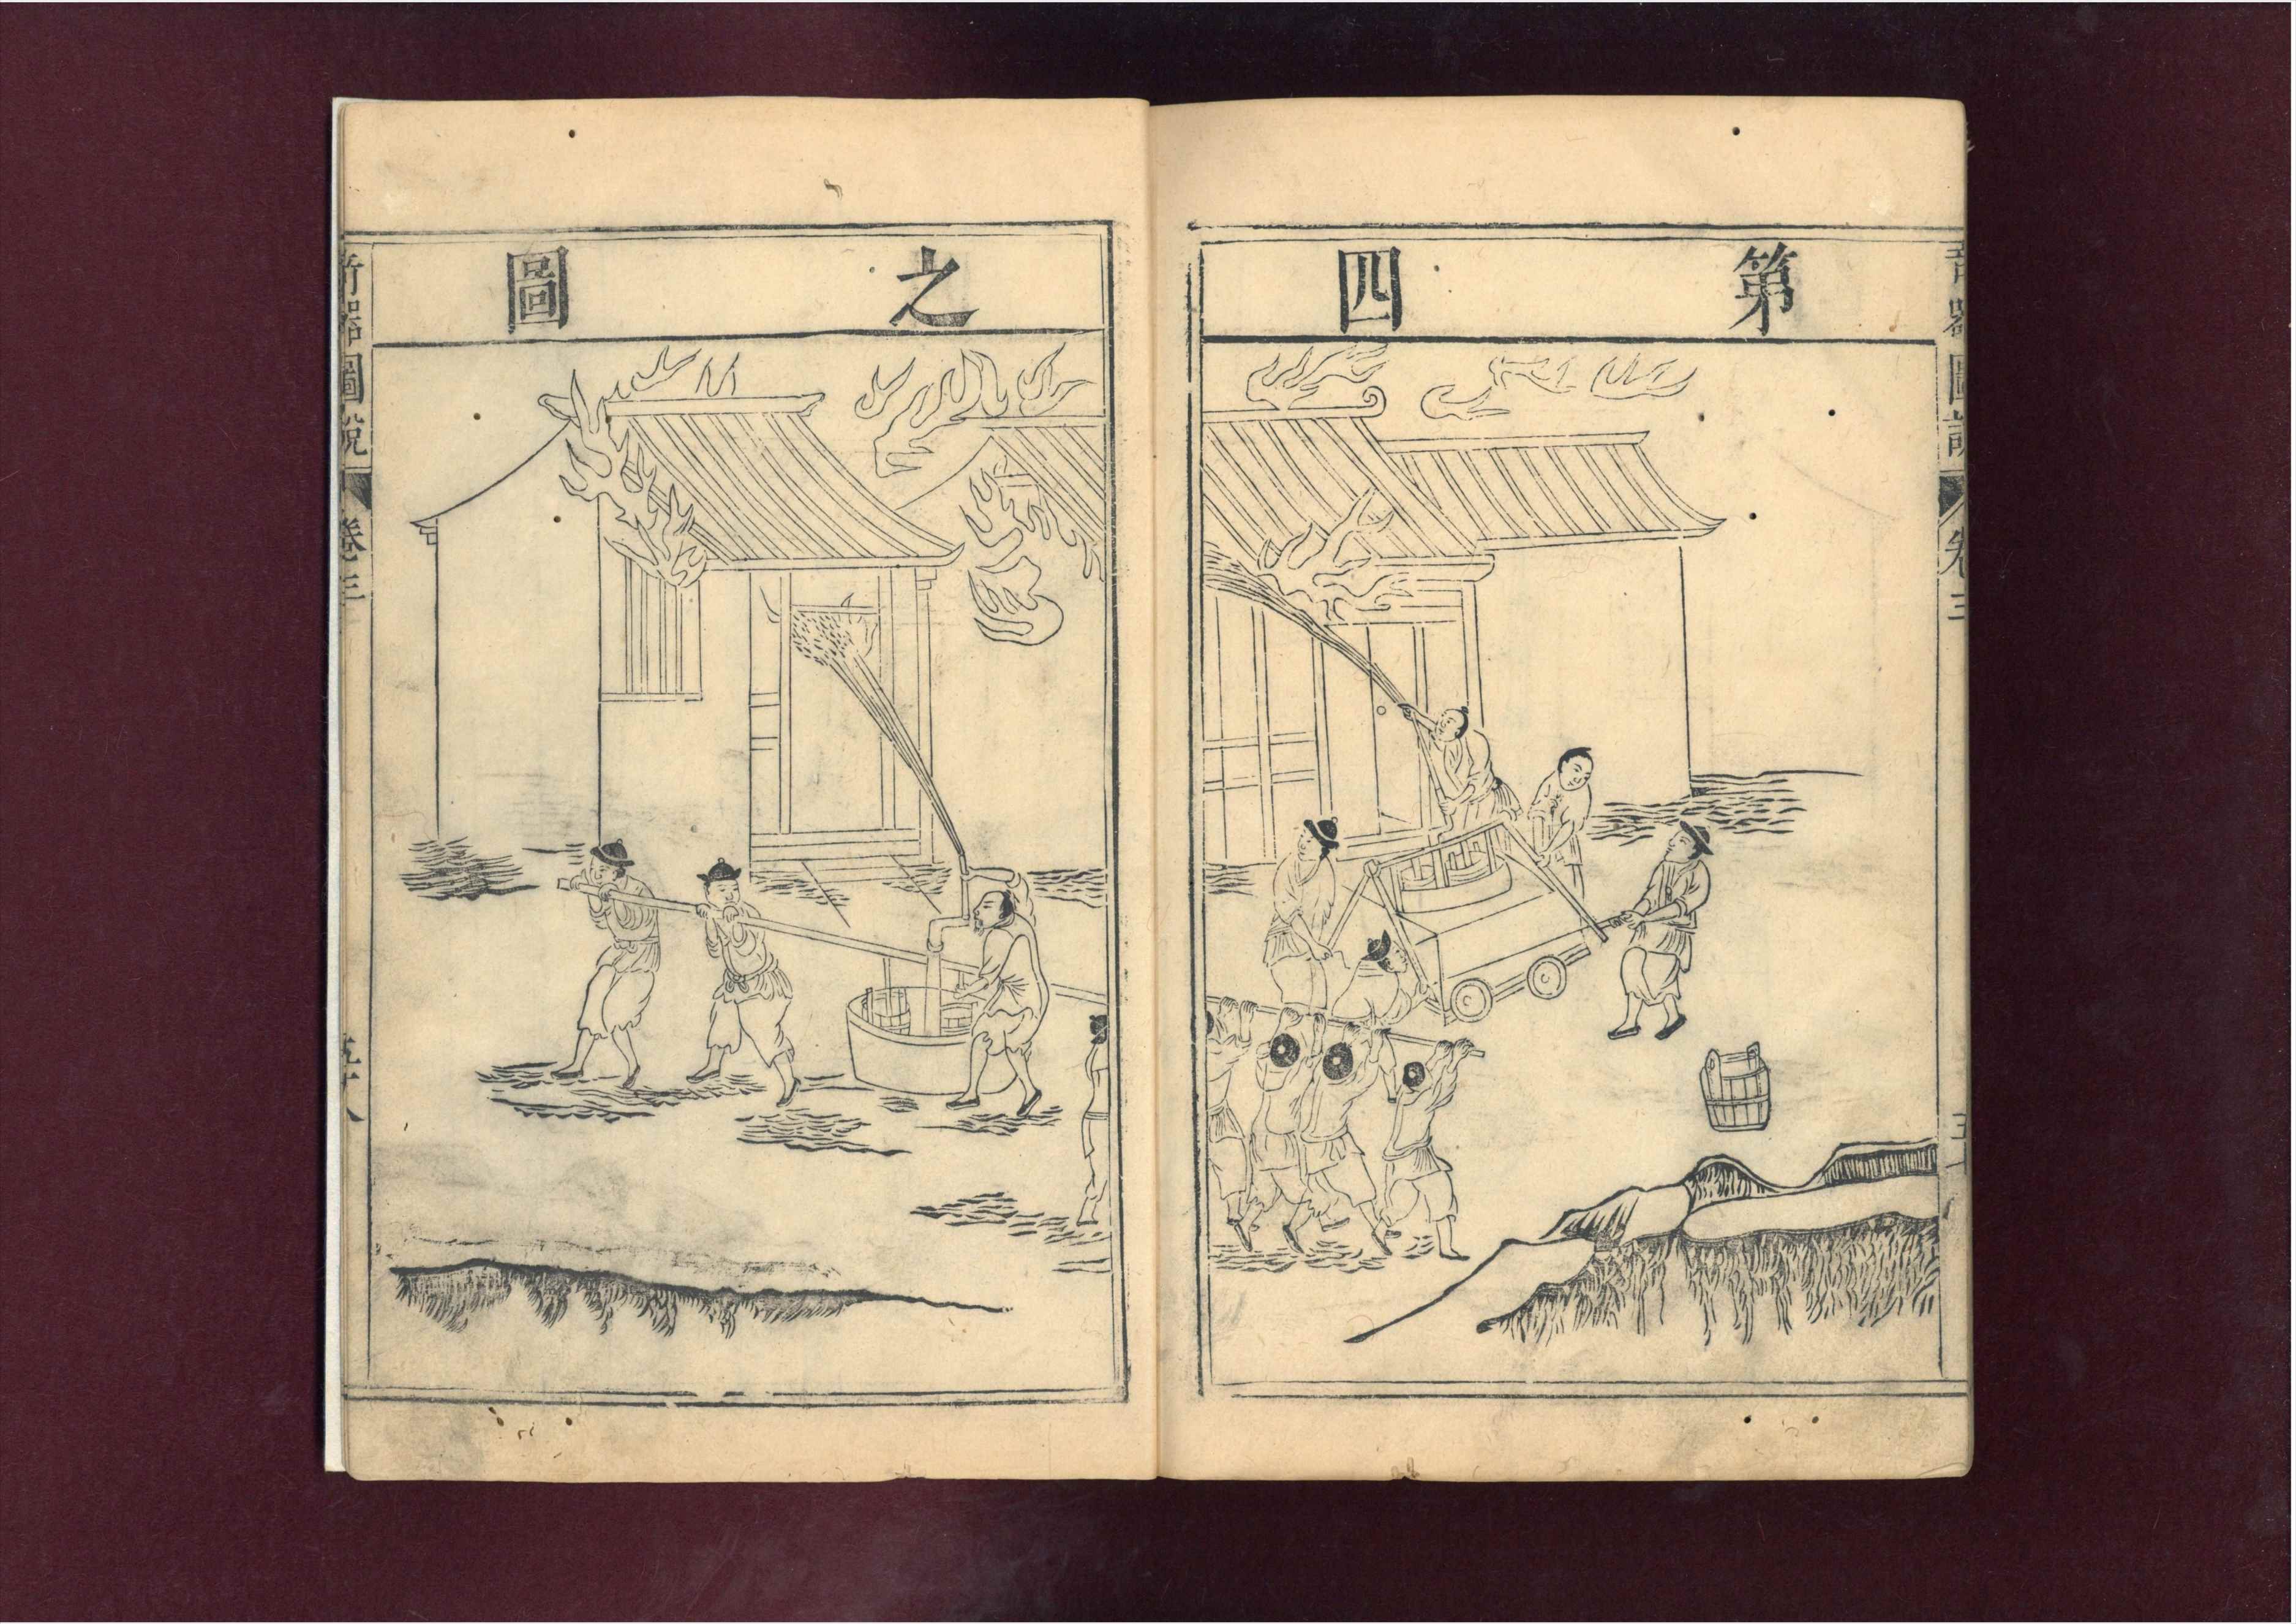 第四
之圖
奇器圖說 卷三
奇器圖說 卷三 五十八